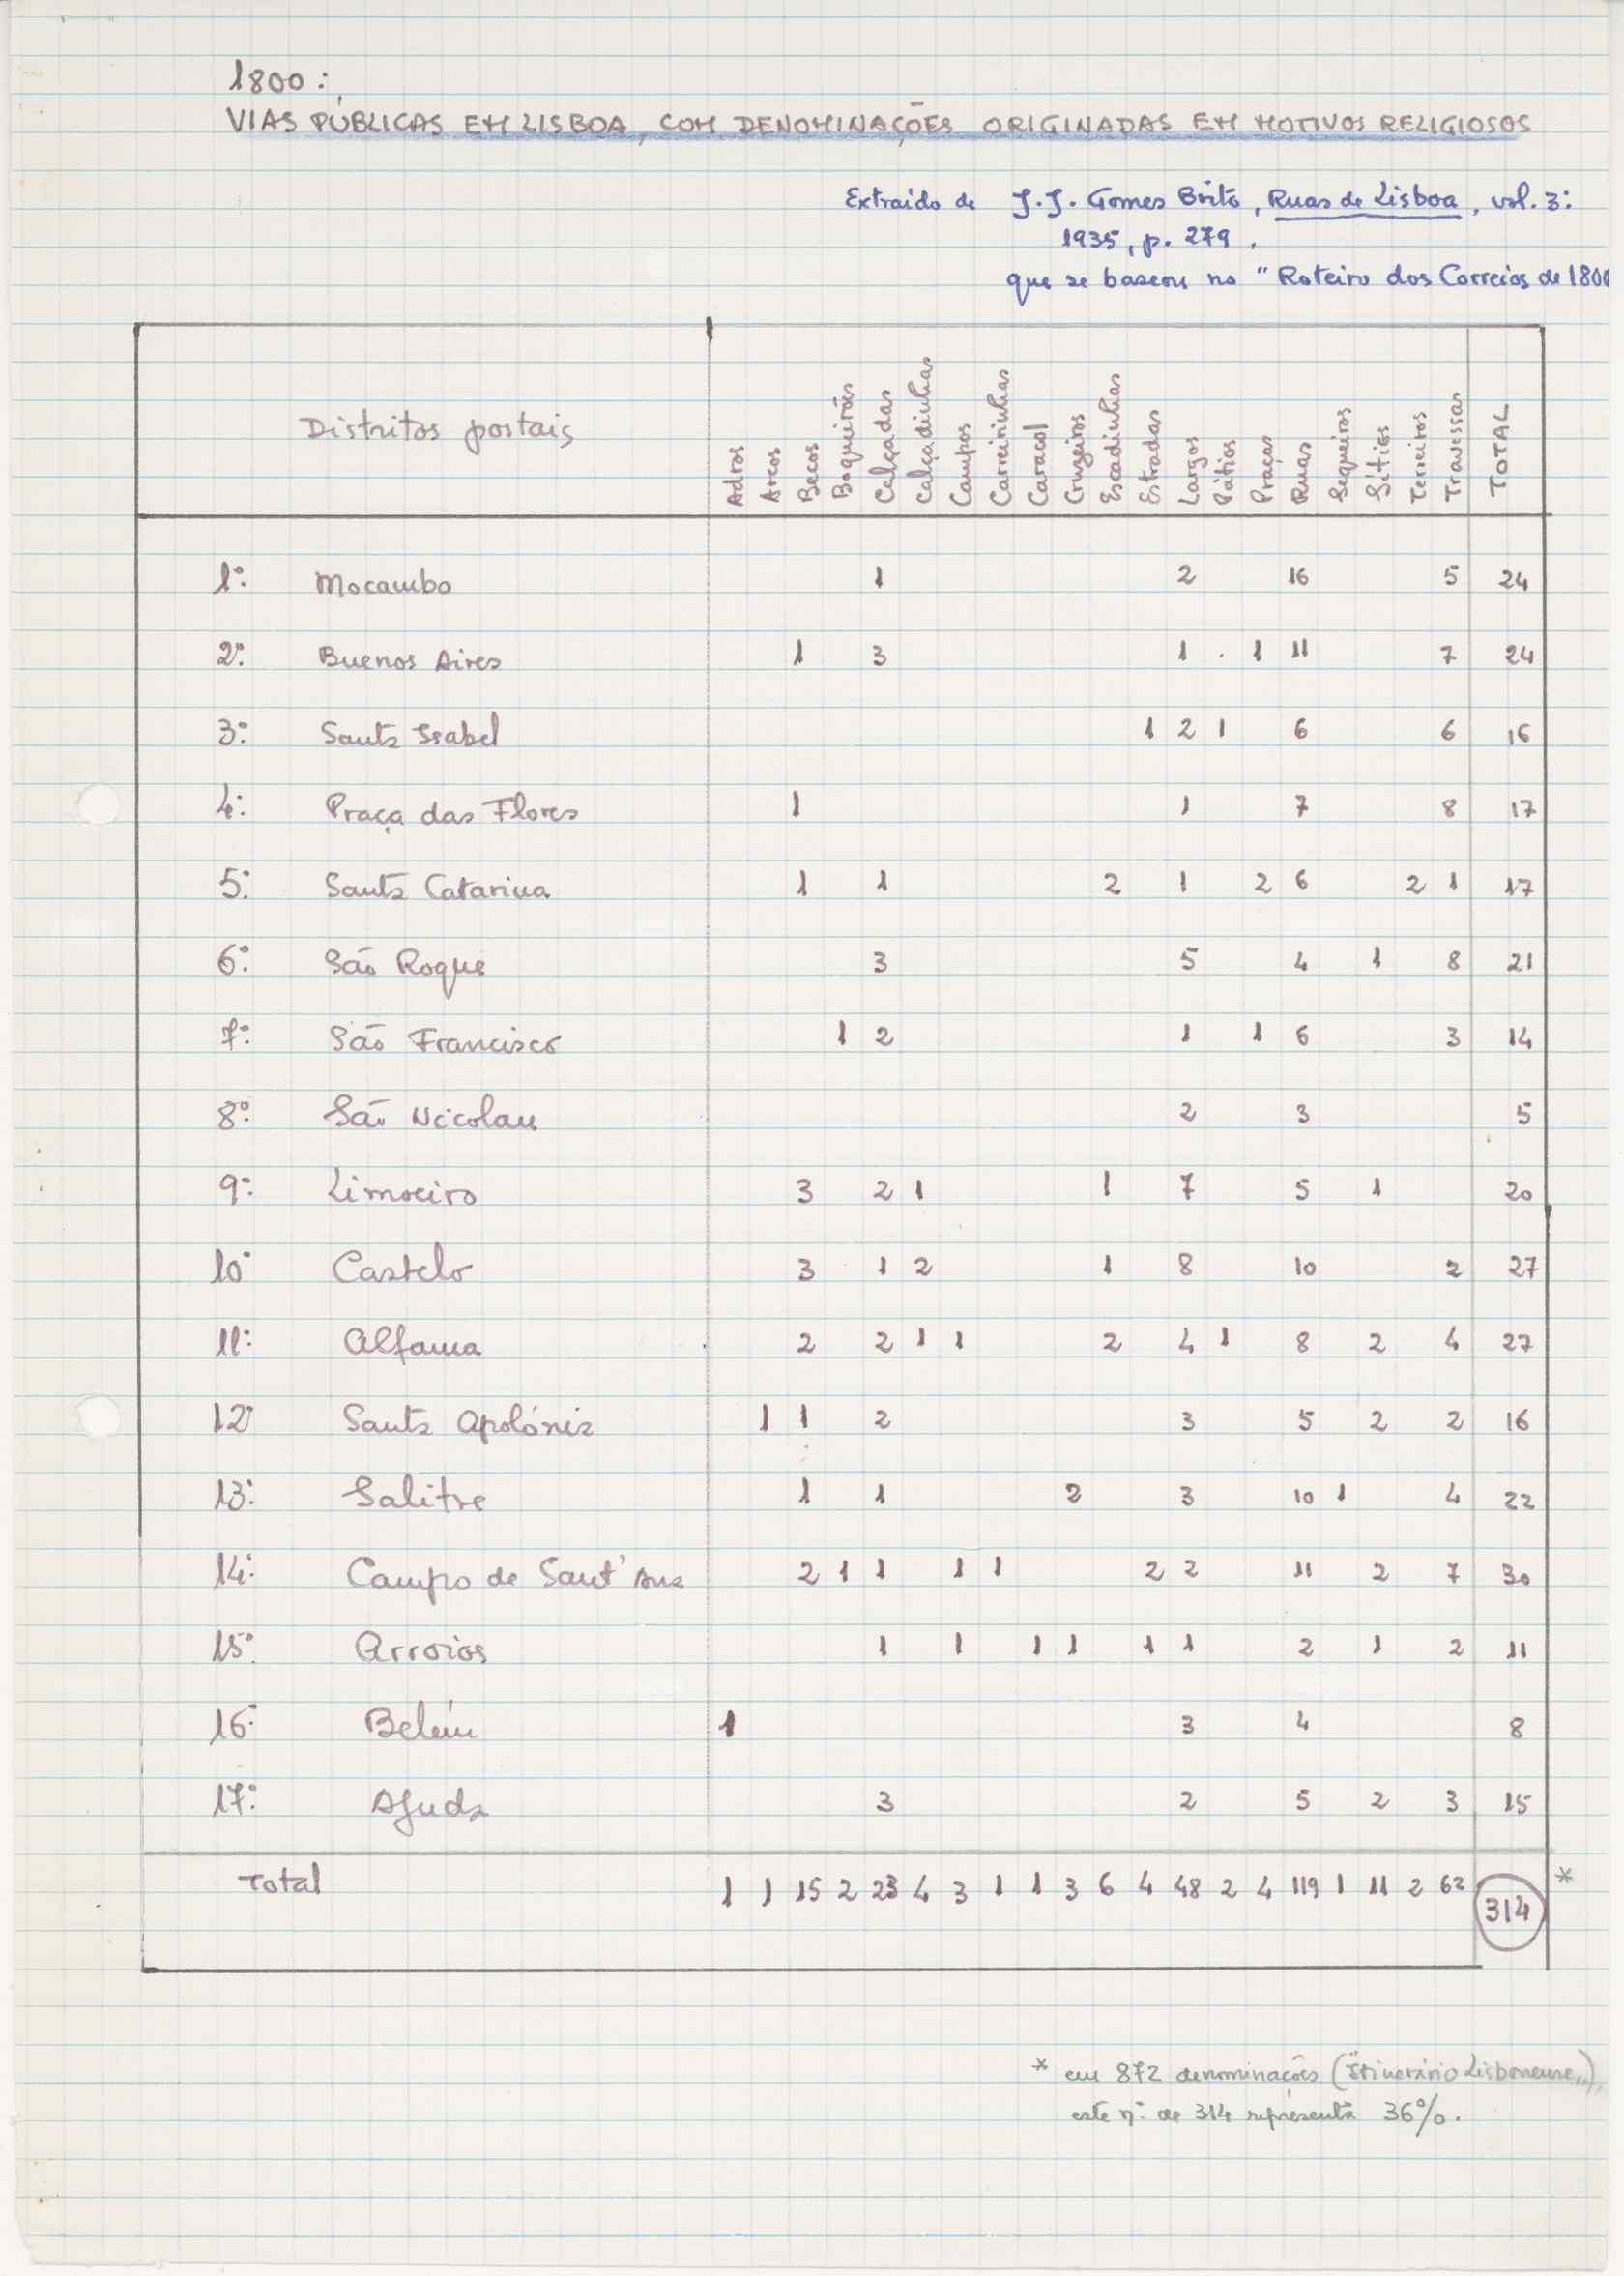 1800:
VIAS PÚBLICAS EM LISBOA, COM DENOMINAÇÕES ORIGINADAS EM MOTIVOS RELIGIOSOS
Extraído de J.J. Gomes Brito, Ruas de Lisboa, vol. 3:
1935, p. 279,
que se baseou no "Roteiro dos Correios de 1800
Distritos postais Adros Arcos Becos Boqueirões Calçadas Calçadinhas Campos Carreirinhas Caracol Cruzeiros Escadinhas Estradas Largos Pátios Praças Ruas Sequeiros Sítios Terreiros Travessas TOTAL
1º. Mocambo 1 2 16 5 24
2º. Buenos Aires 1 3 1 . 1 11 7 24
3º. Santa Isabel 1 2 1 6 6 16
4º. Praça das Flores 1 1 7 8 17
5º. Santa Catarina 1 1 2 1 2 6 2 1 17
6º. São Roque 3 5 4 1 8 21
7º. São Francisco 1 2 1 1 6 3 14
8º. São Nicolau 2 3 5
9º. Limoeiro 3 2 1 1 7 5 1 20
10º Castelo 3 1 2 1 8 10 2 27
11º. Alfama 2 2 1 1 2 4 1 8 2 4 27
12º Santa Apolónia 1 1 2 3 5 2 2 16
13º. Salitre 1 1 2 3 10 1 4 22
14º. Campo de Sant'Ana 2 1 1 1 1 2 2 11 2 7 30
15º. Arroios 1 1 1 1 1 1 2 1 2 11
16º. Belém 1 3 4 8
17º. Ajuda 3 2 5 2 3 15
Total 1 1 15 2 23 4 3 1 1 3 6 4 48 2 4 119 1 11 2 62 314 *
* em 872 denominações ("Itinerário Lisbonense"),
este nº. de 314 representa 36%.